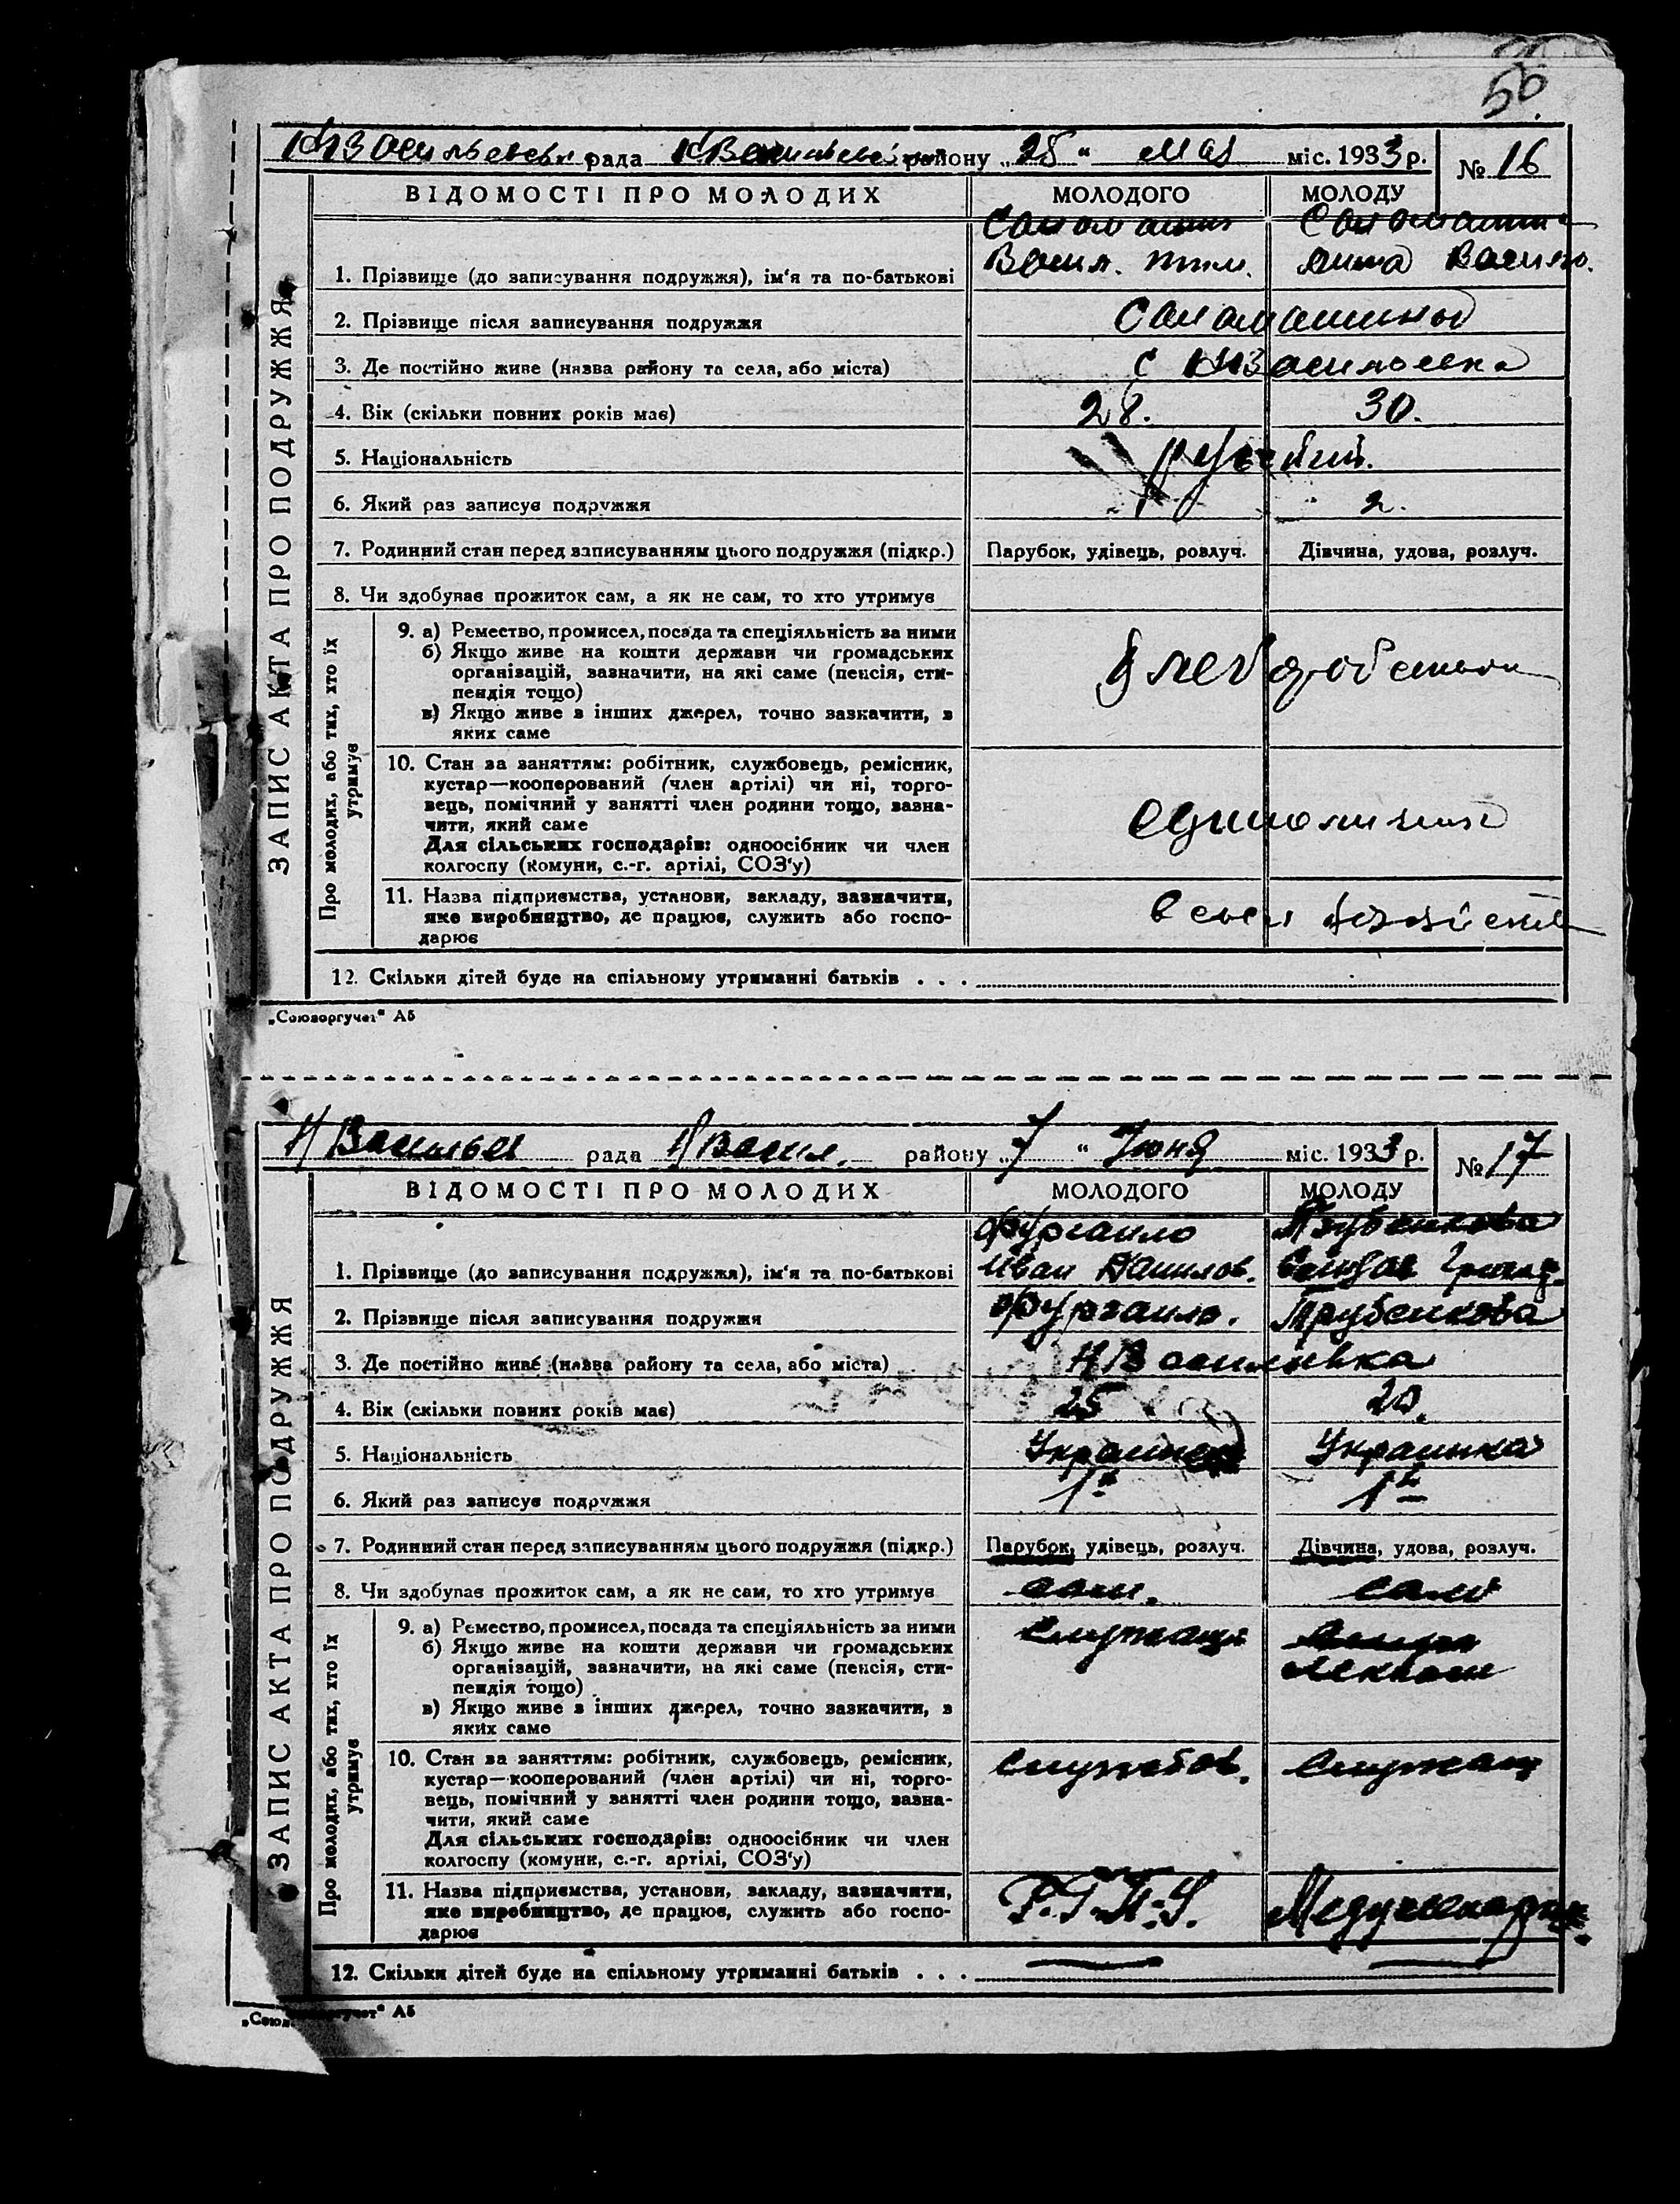 56
рада району „28“ мая міс. 1933 р. № 16
ВІДОМОСТІ ПРО МОЛОДИХ МОЛОДОГО МОЛОДУ
1. Прізвище (до записування подружжя), ім'я та по-батькові
2. Прізвище після записування подружжя
3. Де постійно живе (назва району та села, або міста) с
4. Вік (скільки повних років має) 28. 30.
5. Національність
6. Який раз записує подружжя 2.
7. Родинний стан перед записуванням цього подружжя (підкр.) Парубок, удівець, розлуч. Дівчина, удова, розлуч.
8. Чи здобував прожиток сам, а як не сам, то хто утримує
9. а) Ремество, промисел, посада та спеціяльність за ними
б) Якщо живе на кошти держави чи громадських
організацій, зазначити, на які саме (пенсія, сти-
пендія тощо)
в) Якщо живе з інших джерел, точно зазначити, з
яких саме
10. Стан за заняттям: робітник, службовець, ремісник,
кустар—кооперований (член артілі) чи ні, торго-
вець, помічний у занятті член родини тощо, зазна-
чити, який саме
Для сільських господарів: одноосібник чи член
колгоспу (комуни, с.-г. артілі, СОЗ'у)
11. Назва підприємства, установи, закладу, зазначити,
яке виробництво, де працює, служить або госпо-
дарює
12. Скільки дітей буде на спільному утриманні батьків . . .
ЗАПИС АКТА ПРО ПОДРУЖЖЯ
Про молодих, або тих, хто їх
утримує
„Союзоргучет“ А5
рада району „7“ Июня міс. 1933 р. № 17
ВІДОМОСТІ ПРО МОЛОДИХ МОЛОДОГО МОЛОДУ
1. Прізвище (до записування подружжя), ім'я та по-батькові Иван Данилов.
2. Прізвище після записування подружжя Трубенкова
3. Де постійно живе (назва району та села, або міста) Н Василівка
4. Вік (скільки повних років має) 25 20.
5. Національність Украинец Украинка
6. Який раз записує подружжя 1й 1й
7. Родинний стан перед записуванням цього подружжя (підкр.) Парубок, удівець, розлуч. Дівчина, удова, розлуч.
8. Чи здобував прожиток сам, а як не сам, то хто утримує сам. сама
9. а) Ремество, промисел, посада та спеціяльність за ними
б) Якщо живе на кошти держави чи громадських
організацій, зазначити, на які саме (пенсія, сти-
пендія тощо)
в) Якщо живе з інших джерел, точно зазначити, з
яких саме
10. Стан за заняттям: робітник, службовець, ремісник, службов. служащ
кустар—кооперований (член артілі) чи ні, торго-
вець, помічний у занятті член родини тощо, зазна-
чити, який саме
Для сільських господарів: одноосібник чи член
колгоспу (комуни, с.-г. артілі, СОЗ'у)
11. Назва підприємства, установи, закладу, зазначити,
яке виробництво, де працює, служить або госпо-
дарює
12. Скільки дітей буде на спільному утриманні батьків . . .
ЗАПИС АКТА ПРО ПОДРУЖЖЯ
Про молодих, або тих, хто їх
утримує
А5